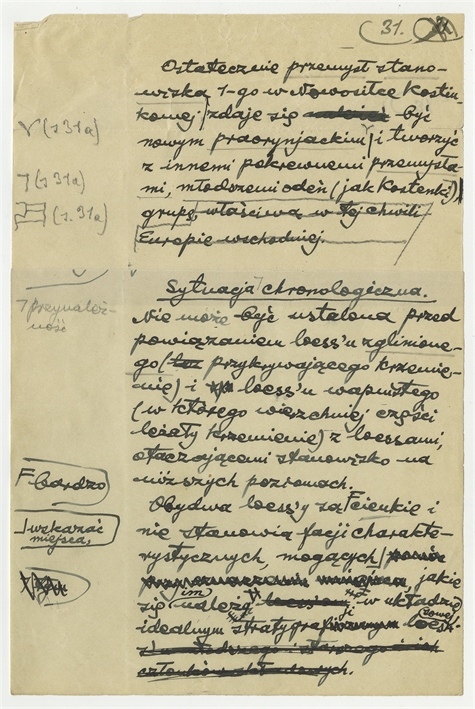 31.
Ostatecznie przemysł stano-
wiska 1-go w Nowosiłce Kostiu-
kowej zdaje się być
nowym praorynjackim i tworzyć
z innemi pokrewnemi przemysła-
mi, młodszemi odeń (jak Kostenki)
grupę właściwą w tej chwili
Europie wschodniej.
V (s 31a)
7 (s 31a)
(s. 31a)
Sytuacja chronologiczna.
Nie może być ustalona przed
powiązaniem loess'u zglinione-
go (przykrywającego krzemie-
nie) i loess'u wapnistego
(w którego wierzchniej części
leżały krzemienie) z loessami,
otaczającemi stanowisko na
niższych poziomach.
7 przynależ-
ność
Obydwa loess'y są F cienkie i
nie stanowią facji charakte-
rystycznych, mogących
jakie
się im należą w układzie
idealnym stratygraficznym
członków
F bardzo
wskazać
miejsca,